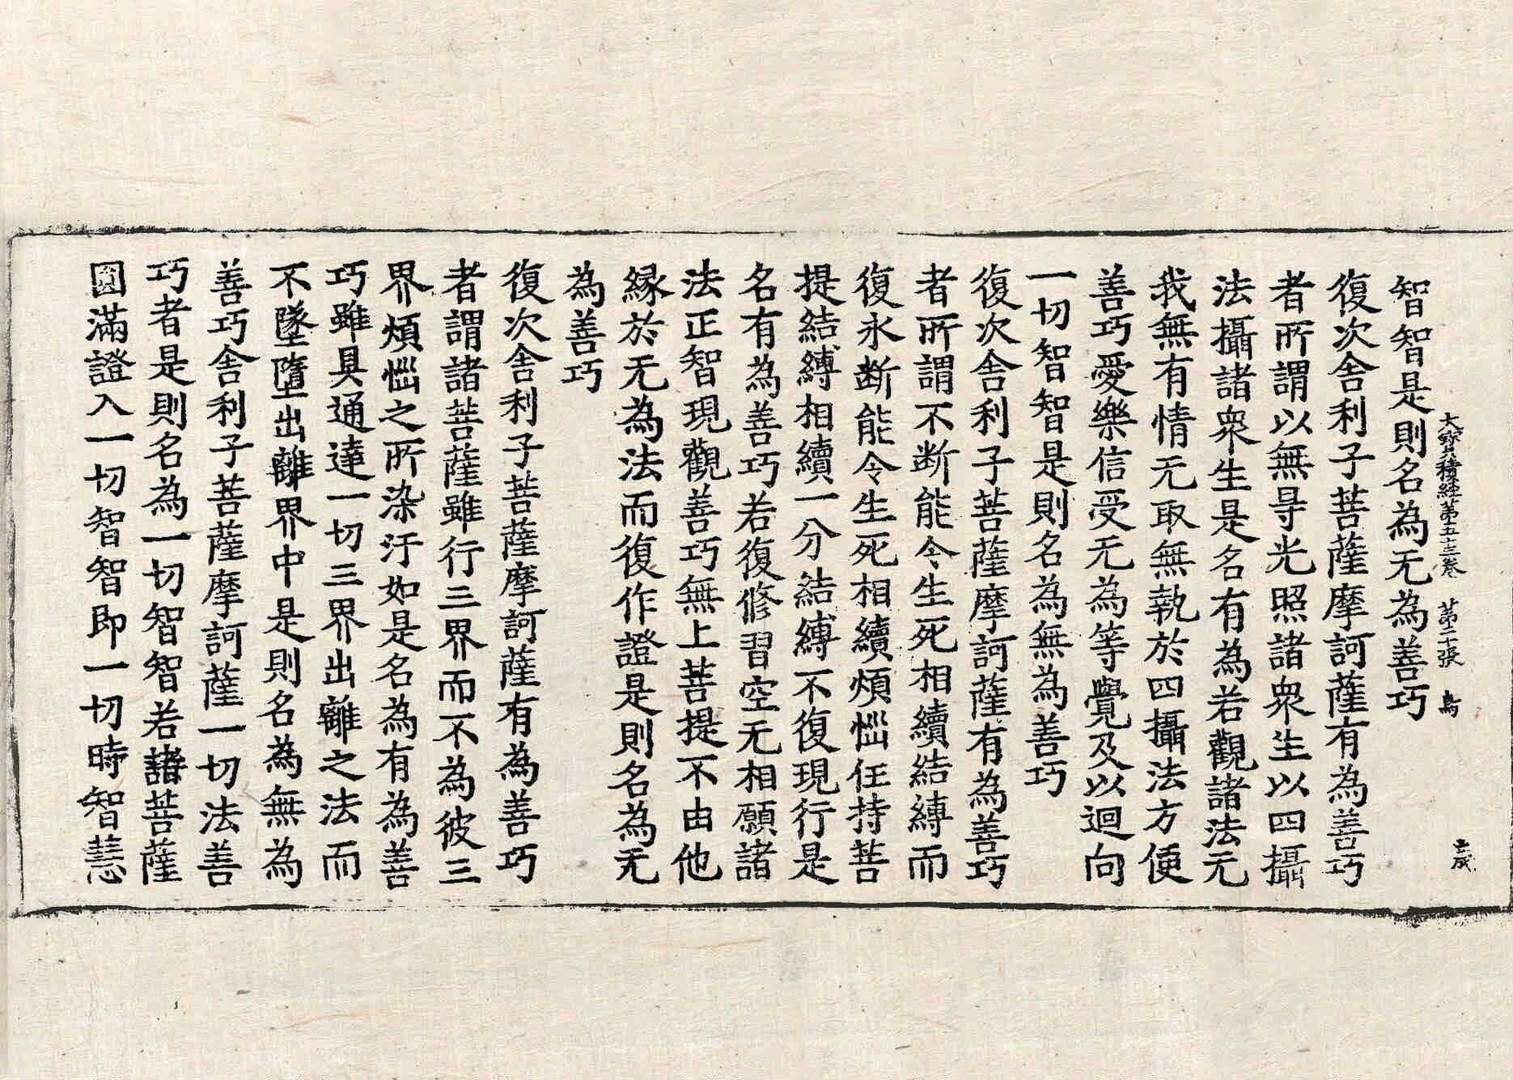 大寶積經第五十三卷 第二張 鳥
智智是則名為无為善巧
復次舍利子菩薩摩訶薩有為善巧
者所謂以無㝵光照諸衆生以四攝
法攝諸衆生是名有為若觀諸法无
我無有情无取無執於四攝法方便
善巧愛樂信受无為等覺及以迴向
一切智智智是則名為無為善巧
復次舍利子菩薩摩訶薩有為善巧
者所謂不断能令生死相續結縛而
復永断能令生死相續煩惱任持菩
提結縛相續一分結縛不復現行是
名有為善巧若復修習空无相願諸
法正智現觀善巧無上菩提不由他
緣於无為法而復作證是則名為无
為善巧
復次舍利子菩薩摩訶薩有為善巧
者謂諸菩薩雖行三界而不為彼三
界煩惱之所染汙如是名為有為善
巧雖具通達一切三界出離之法而
不墜墮出離界中是則名為無為
善巧舍利子菩薩摩訶薩一切法善
巧者是則名為一切智智智若諸菩薩
圓滿證入一切智智即一切時智慧